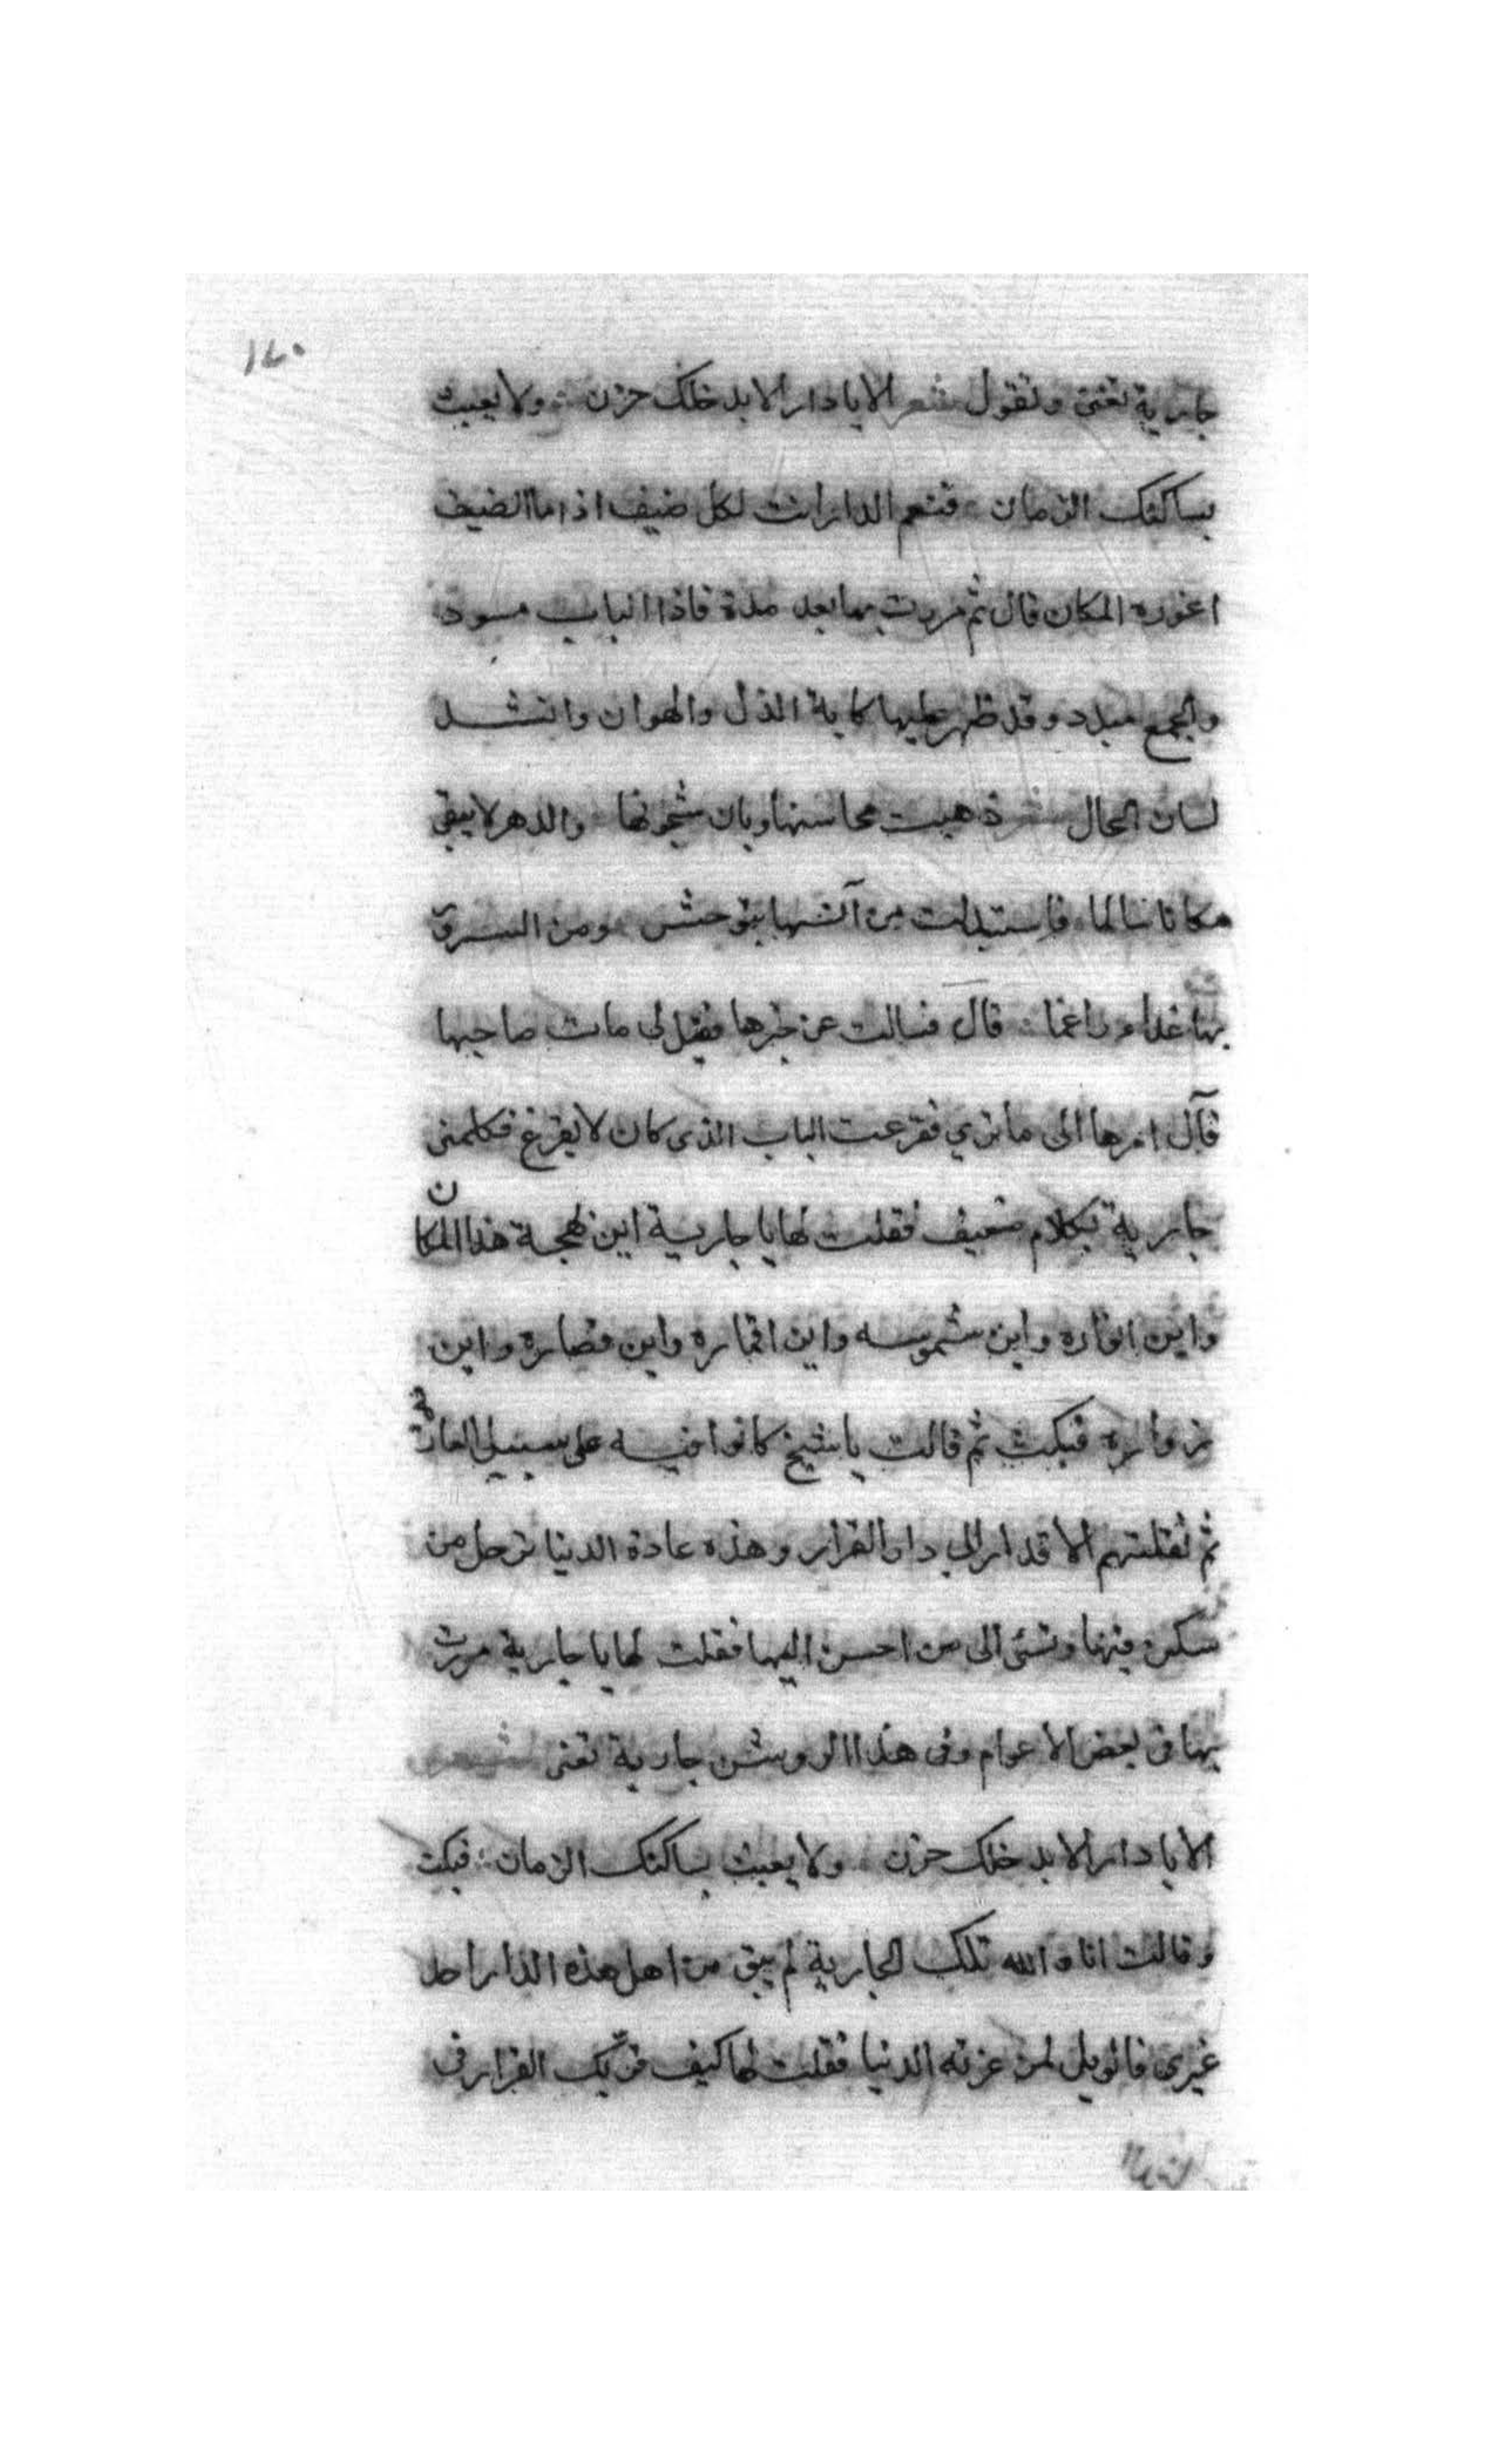 ١٤٠
جارية تغنى وتقول شعر الا يا دار لا يدخلك حزن ولا يعبث
بساكنك الزمان فنعم الدار انت لكل ضيف اذا ما الضيف
اعوزه المكان قال ثم مررت بها بعد مدة فاذا الباب مسود
والجمع مبدد وقد ظهر عليها كابة الذل والهوان وانشد
لسان الحال شعر ذهبت محاسنها وبان شجونها والدهر لا يبقى
مكانا سالما فاستبدلت من آنسها بتوحش ومن السرور
بها غداء راغما قال فسالت عن خبرها فقيل لى مات صاحبها
فآل امرها الى ما ترى فقرعت الباب الذى كان لا يقرغ فكلمنى
جارية بكلام ضعيف فقلت لها يا جارية اين بهجة هذا المكان
واين انواره واين شموسه واين اقماره واين قصاره واين
زواره فبكت ثم قالت يا شيخ كانوا فيه على سبيل العارية
ثم نقلتهم الاقدار الى دار القرار وهذه عادة الدنيا ترحل من
سكن فيها وتسئ الى من احسن اليها فقلت لها يا جارية مررت
بها فى بعض الاعوام وفى هذا الروشن جارية تغنى شعر
الا يا دار لا يدخلك حزن ولا يعبث بساكنك الزمان فبكت
وقالت انا والله تلك الجارية لم يبق من اهل هذه الدار احد
غيرى فالويل لمن غرته الدنيا فقلت لها كيف قر بك القرار فى